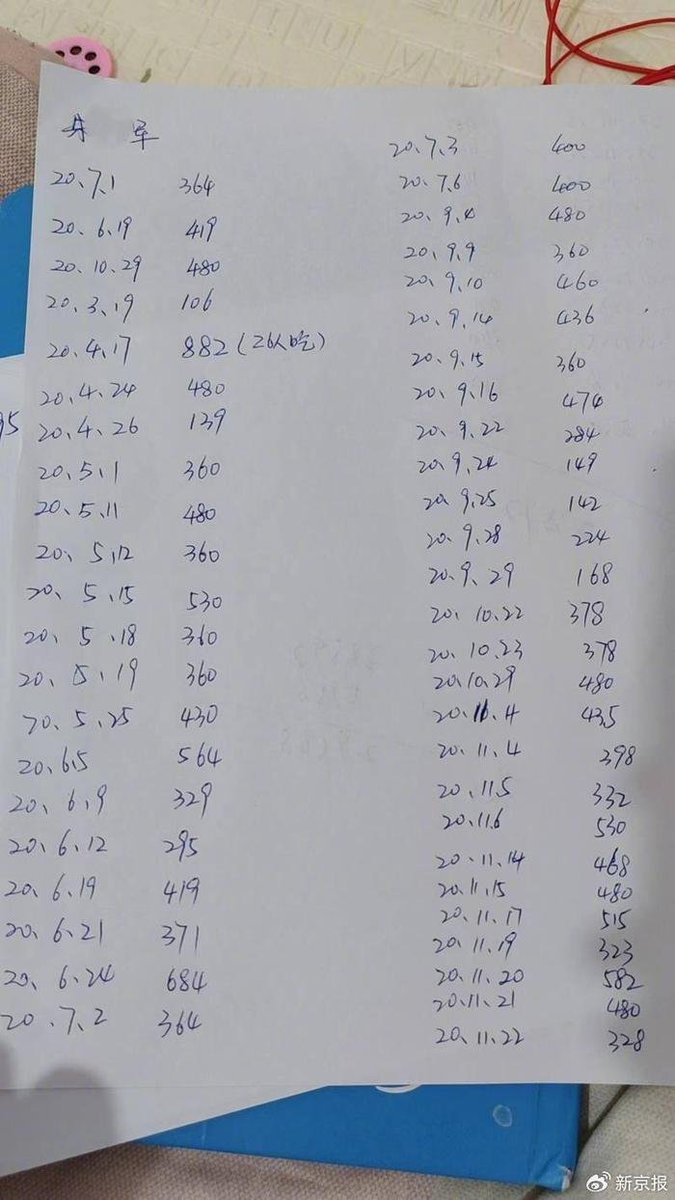 军
20、7、1 364
20、6、19 419
20、10、29 480
20、3、19 106
20、4、17 882(26人吃)
20、4、24 480
20、4、26 139
20、5、1 360
20、5、11 480
20、5、12 360
20、5、15 530
20、5、18 360
20、5、19 360
20、5、25 430
20、6、5 564
20、6、9 329
20、6、12 295
20、6、19 419
20、6、21 371
20、6、24 684
20、7、2 364
20、7、3 400
20、7、6 400
20、9、4 480
20、9、9 360
20、9、10 460
20、9、14 436
20、9、15 360
20、9、16 474
20、9、22 284
20、9、24 149
20、9、25 142
20、9、28 224
20、9、29 168
20、10、22 378
20、10、23 378
20、10、29 480
20、11、4 435
20、11、4 398
20、11、5 332
20、11、6 530
20、11、14 468
20、11、15 480
20、11、17 515
20、11、19 323
20、11、20 582
20、11、21 480
20、11、22 328
95
新京报